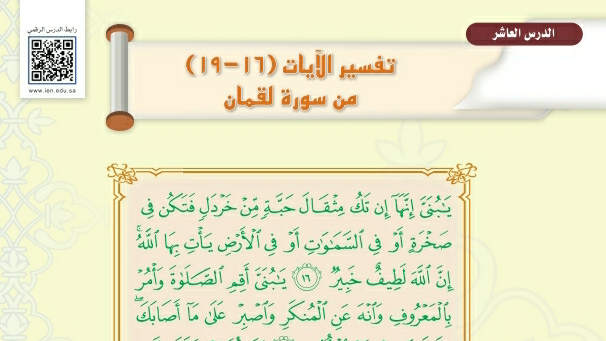 رابط الدرس الرقمي
www.ien.edu.sa
الدرس العاشر
تفسير الآيات (١٦-١٩)
من سورة لقمان
يَـٰبُنَىَّ إِنَّهَآ إِن تَكُ مِثْقَالَ حَبَّةٍ مِّنْ خَرْدَلٍ فَتَكُن فِى
صَخْرَةٍ أَوْ فِى ٱلسَّمَـٰوَٰتِ أَوْ فِى ٱلْأَرْضِ يَأْتِ بِهَا ٱللَّهُ ۚ
إِنَّ ٱللَّهَ لَطِيفٌ خَبِيرٌ ١٦ يَـٰبُنَىَّ أَقِمِ ٱلصَّلَوٰةَ وَأْمُرْ
بِٱلْمَعْرُوفِ وَٱنْهَ عَنِ ٱلْمُنكَرِ وَٱصْبِرْ عَلَىٰ مَآ أَصَابَكَ ۖ